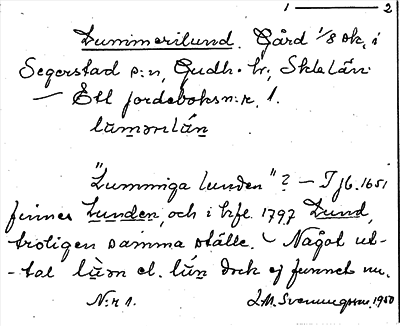 1 — 2
Lummerilund. Gård 1/8 mk, i
Segerstad s:n, Gudh. hr, Skla län.
— Ett jordeboksn:r, 1.
"Lummiga lunden"? — I jb. 1651
finnes Lunden, och i hfl. 1797 Lund,
troligen samma ställe. — Något ut-
-tal el. dock ej funnet nu.
N:r 1. 1950